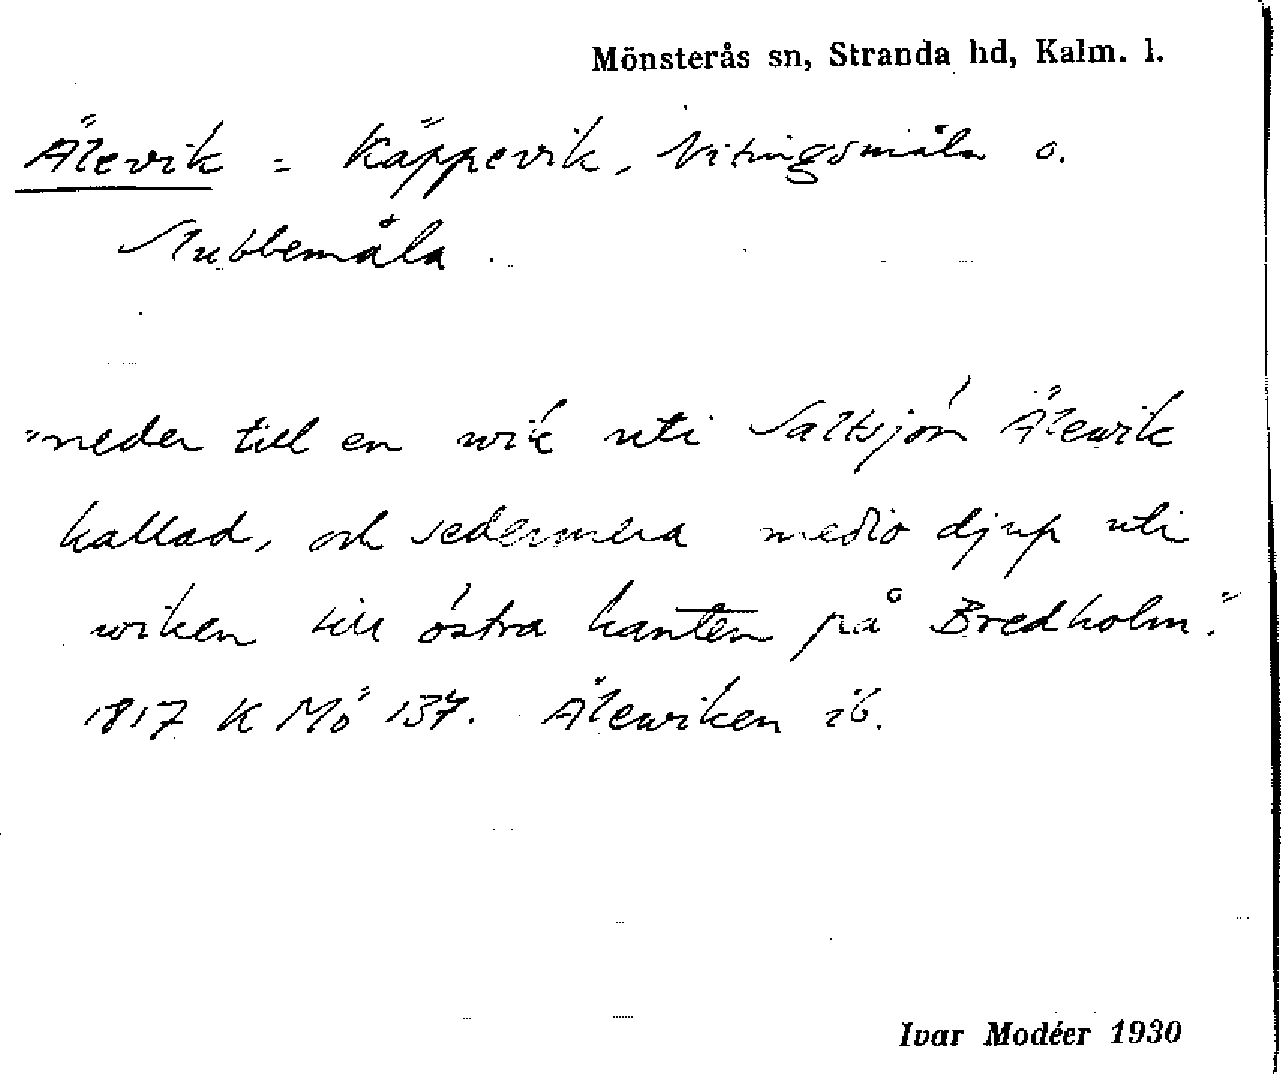 Mönsterås sn, Stranda hd, Kalm. l.
Älevik = Käppevik, Nitingsmåla o.
Stubbemåla.
"neder till en wik uti Saltsjön Älewik
kallad, och sedermera medio djup uti
wiken till östra kanten på Bredholm".
1817 K Mö 137. Älewiken ib.
Ivar Modéer 1930